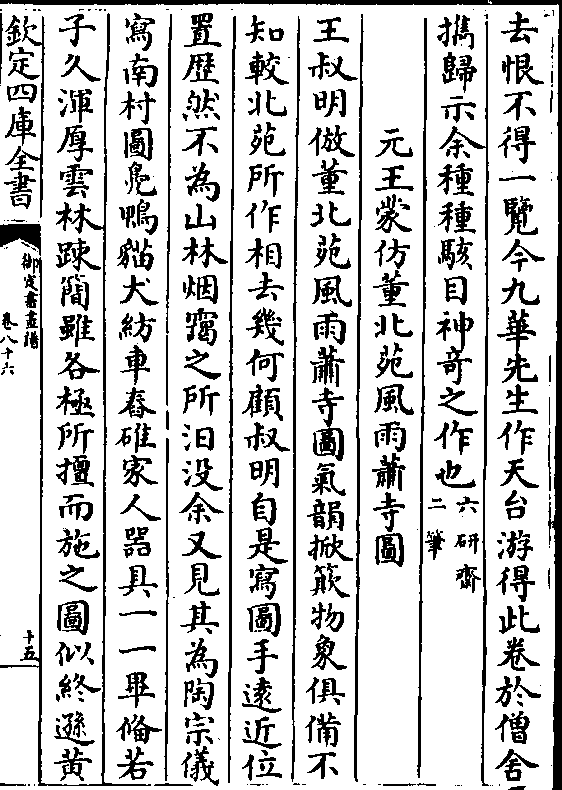 去恨不得一覽今九華先生作天台游得此卷於僧舍
擕歸示余種種駭目神竒之作也六研齋二筆
元王蒙仿董北苑風雨蕭寺圖
王叔明倣董北苑風雨蕭寺圖氣韻掀簸物象俱備不
知較北苑所作相去幾何顧叔明自是寫圖手逺近位
置歴然不為山林烟靄之所汩没余又見其為陶宗儀
寫南村圖鳬鴨貓犬紡車舂碓家人器具一一畢俻若
子久渾厚雲林踈簡雖各極所擅而施之圖似終遜黄
欽定四庫全書
御定書畫譜
卷八十六
十五